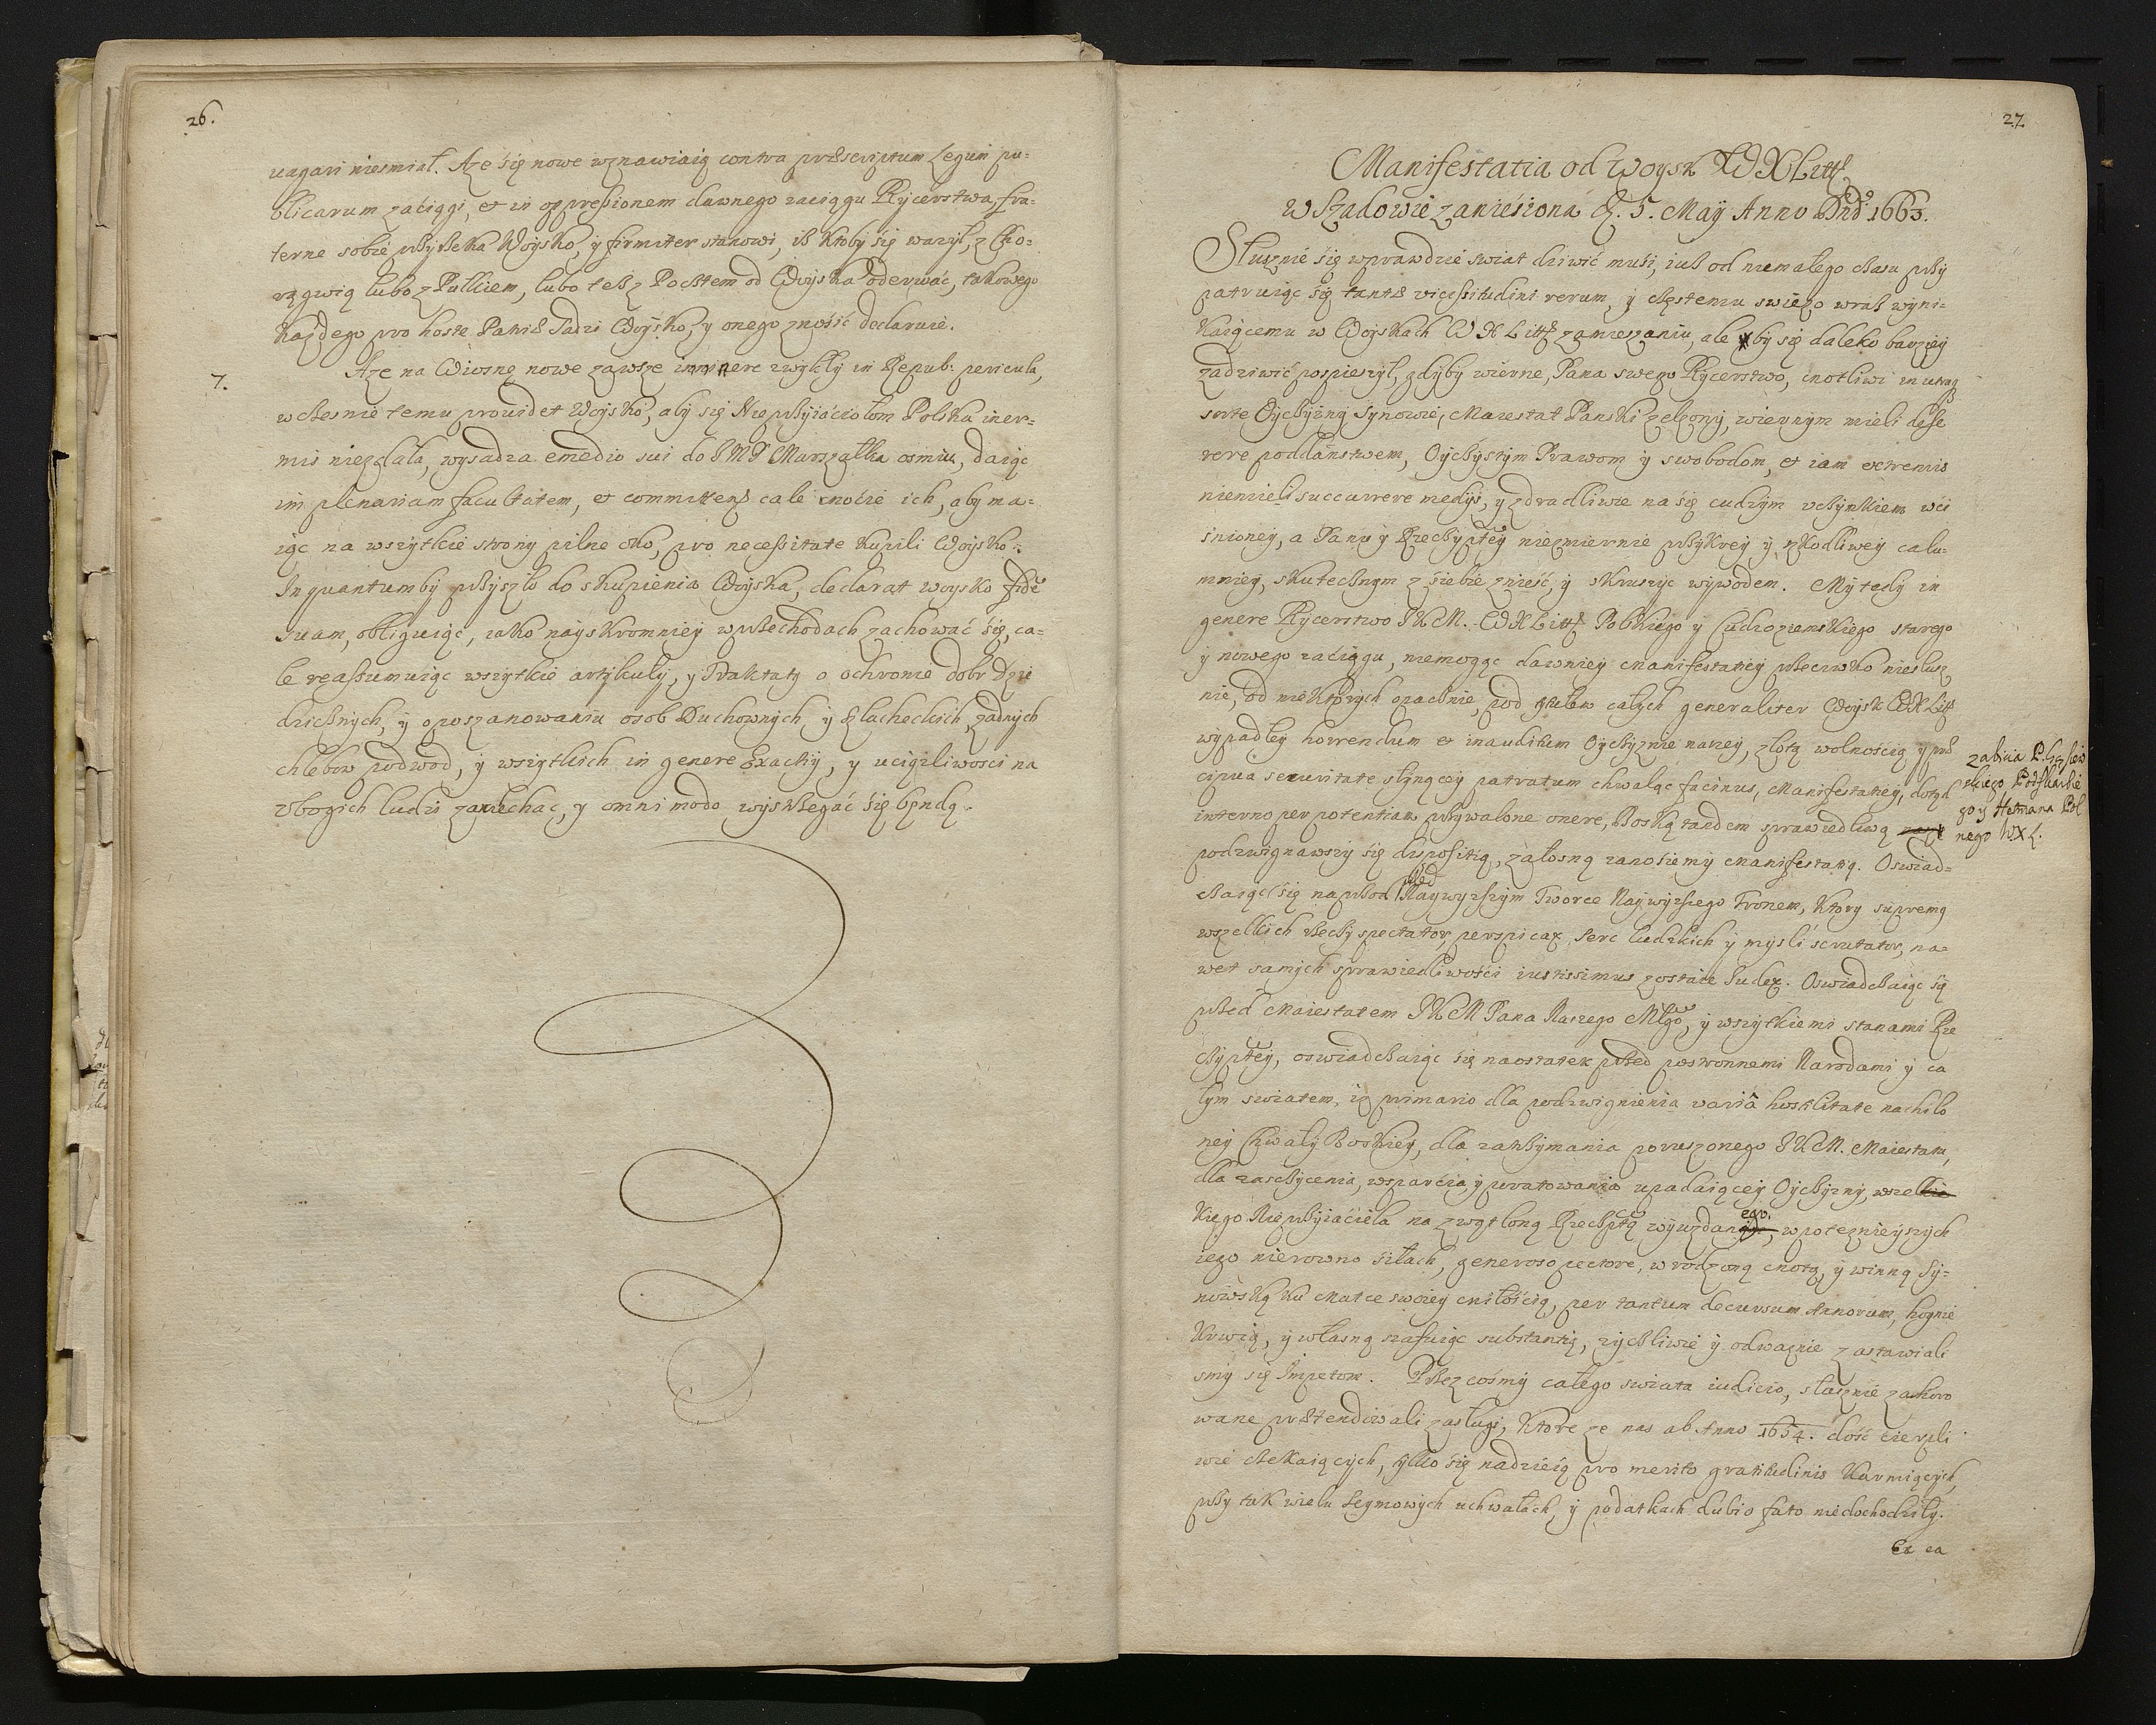 26.
uagari niesmiał. Aze się nowe wznawiaią contra præscriptum Legum pu-
blicarum zaciągi, et in oppressionem dawnego zaciągu Rycerstwa, fra-
terne sobie przyrzeka Woysko, y firmiter stanowi, isz ktoby się wazył, z Cho-
rągwią lubo z Pułkiem, lubo tesz z Pocztem od Woyska oderwać, takowego
kazdego pro hoste Patriæ sądzi Woysko, y onego znosić declaruie.
7. Aze na Wiosnę nowe zawsze imminere zwykły in Repub: pericula,
wczesnie temu prouidet Woysko, aby się Nieprzyiaciołom Polska iner-
mis niezdała, wysadza e medio sui do J M P Marszałka osmiu, daiąc
im plenariam facultatem, et committens cale cnocie ich, aby ma-
iąc na wszytkie strony pilne oko, pro necessitate kupili Woysko.
In quantumby przyszło do skupienia Woyska, declarat woysko fidē
suam, obliguiąc, iako nayskromniey w przechodach zachować się, ca-
le reassumuiąc wszytkie artykuły, y Traktaty o ochronie dobr Dzie
dzicznych, y oposzanowaniu osob Duchownych y szlacheckich, zadnych
chlebow podwod, y wszytkich in genere Exactiy, y uciązliwosci na
vbogich ludzi zaniechac, y omni modo wystrzegać się będą.
27
Manifestatia od Woysk W X Litt
w Szadowie zaniesiona d. 5. Maÿ Anno Dnī 1663.
Słusznie się wprawdzie swiat dziwić musi, iusz od niemałego czasu przy
patruiąc się tantæ vicissitudini rerum, y częstemu swiezo wraz wyni-
kaiącemu w Woyskach W X Litt zamieszaniu, ale by się daleko barziey
zadziwić pospieszył, gdyby wierne, Pana swego Rycerstwo, cnotliwi in utraq
sorte Oyczyzny synowie, Maiestat Panski zelzony, wiernym mieli defe
rere poddaństwem, Oyczystym Prawom y swobodom, et iam extremis
niemieli succurrere medijs, y zdradliwie na się cudzym uczynkiem wci
snioney, a Panu y Rzeczyptey niezmiernie przykrey y szkodliwey calu-
mniey, skutecznym z siebie znieść, y skruszyc wywodem. My tedy in
genere Rycerstwo J K M. W X Litt Polskiego y Cudzoziemskiego starego
y nowego zaciągu, niemogąc dawniey manifestatiey przeciwko niesłusz
nie, od niektorych opacznie, pod tytułem całych generaliter Woysk W X Litt
wypadłey horrendum et inauditum Oyczyznie naszey, złotą wolnością y præ
cipua securitate słynącey patratum chwaląc facinus, Manifestatiey, dotąd
zabicia P. Gąsiew
skiego Podskarbie
go y Hetmana Pol
nego WXL.
interno per potentiam przywalone onere, Boską tandem sprawiedliwą
podzwignawszy się dispositią, załosną zanosiemy manifestatią. Oswiad-
czaiąc się naprzod przed Naywyzszym Tworce Naywyzszego Tronem, ktory supremą
wszelkich rzeczy spectator, perspicax serc ludzkich y mysli scrutator, na-
wet samych sprawiedliwości iustissimus zostaie Judex. Oswiadczaiąc się
przed Maiestatem J K M Pana Naszego Młgo, y wszytkiemi stanami Rze
czyptey, oswiadczaiąc się naostatek przed postronnemi Narodami y ca
łym swiatem, isz primario dla podzwignienia variâ hostilitate nachilo
ney Chwały Boskiey, dla zatrzymania poruszonego J K M. Maiestatu,
dla zaszczycenia, wsparcia, y poratowania upadaiącey Oyczyzny, wszel
kiego Nieprzyiaciela na zwątloną Rzeczptą wyuzdanego, w potęznieyszych
iego nierowno siłach, generoso pectore, wrodzoną cnotą, y winną Sy-
nowską ku Matce swoiey miłością, per tantum decursum Annorum, hoynie
krwią, y własną szafuiąc substantią, zyczliwie y odwaznie zastawiali
smy się Impetom. Przez cośmy całego swiata iudicio, słusznie zachoro
wane prætendowali zasługi, ktore ze nas ab Anno 1654. dość cierpli
wie czekaiących, tylko się nadzieią pro merito gratitudinis karmiących,
przy tak wielu Seymowych uchwałach, y podatkach dubio fato niedochodziły.
Ex ea